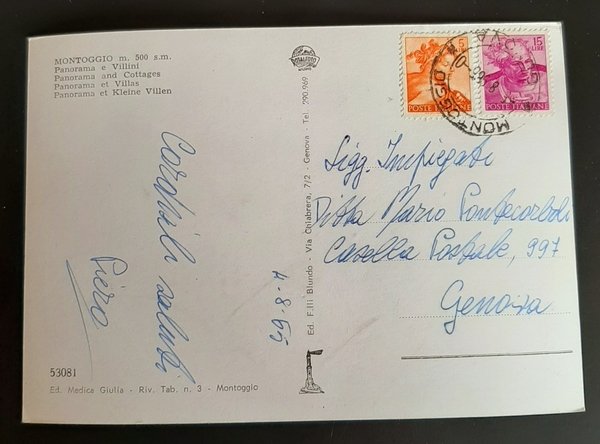 MONTOGGIO m. 500 s.m.
Panorama e Villini
Panorama and Cottages
Panorama et Villas
Panorama et Kleine Villen
Cordiali saluti
Piero
4-8-65
53081
Ed. Medica Giulia - Riv. Tab. n. 3 - Montoggio
Ed. F.lli Blundo - Via Calabrera, 7/2 - Genova - Tel. 290.969
5
POSTE ITALIANE
15
LIRE
POSTE ITALIANE
MONTOGGIO
GENOVA
Sigg. Impiegati
Ditta Mario Pontecorboli
Casella Postale, 997
Genova